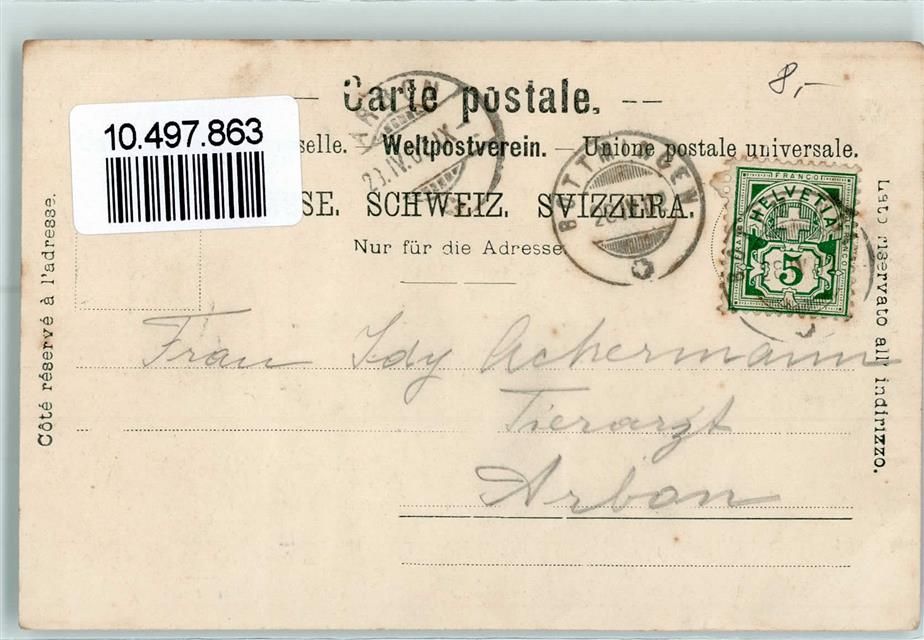 8,-
Carte postale.
10.497.863
selle. - Weltpostverein. - Unione postale universale.
SE. SCHWEIZ. SVIZZERA.
Nur für die Adresse
ARBON
BOTTMINGEN
FRANCO
HELVETIA
5
Côté réservé à l'adresse.
Lato riservato all' indirizzo.
Frau Idy Achermann
Tierarzt
Arbon